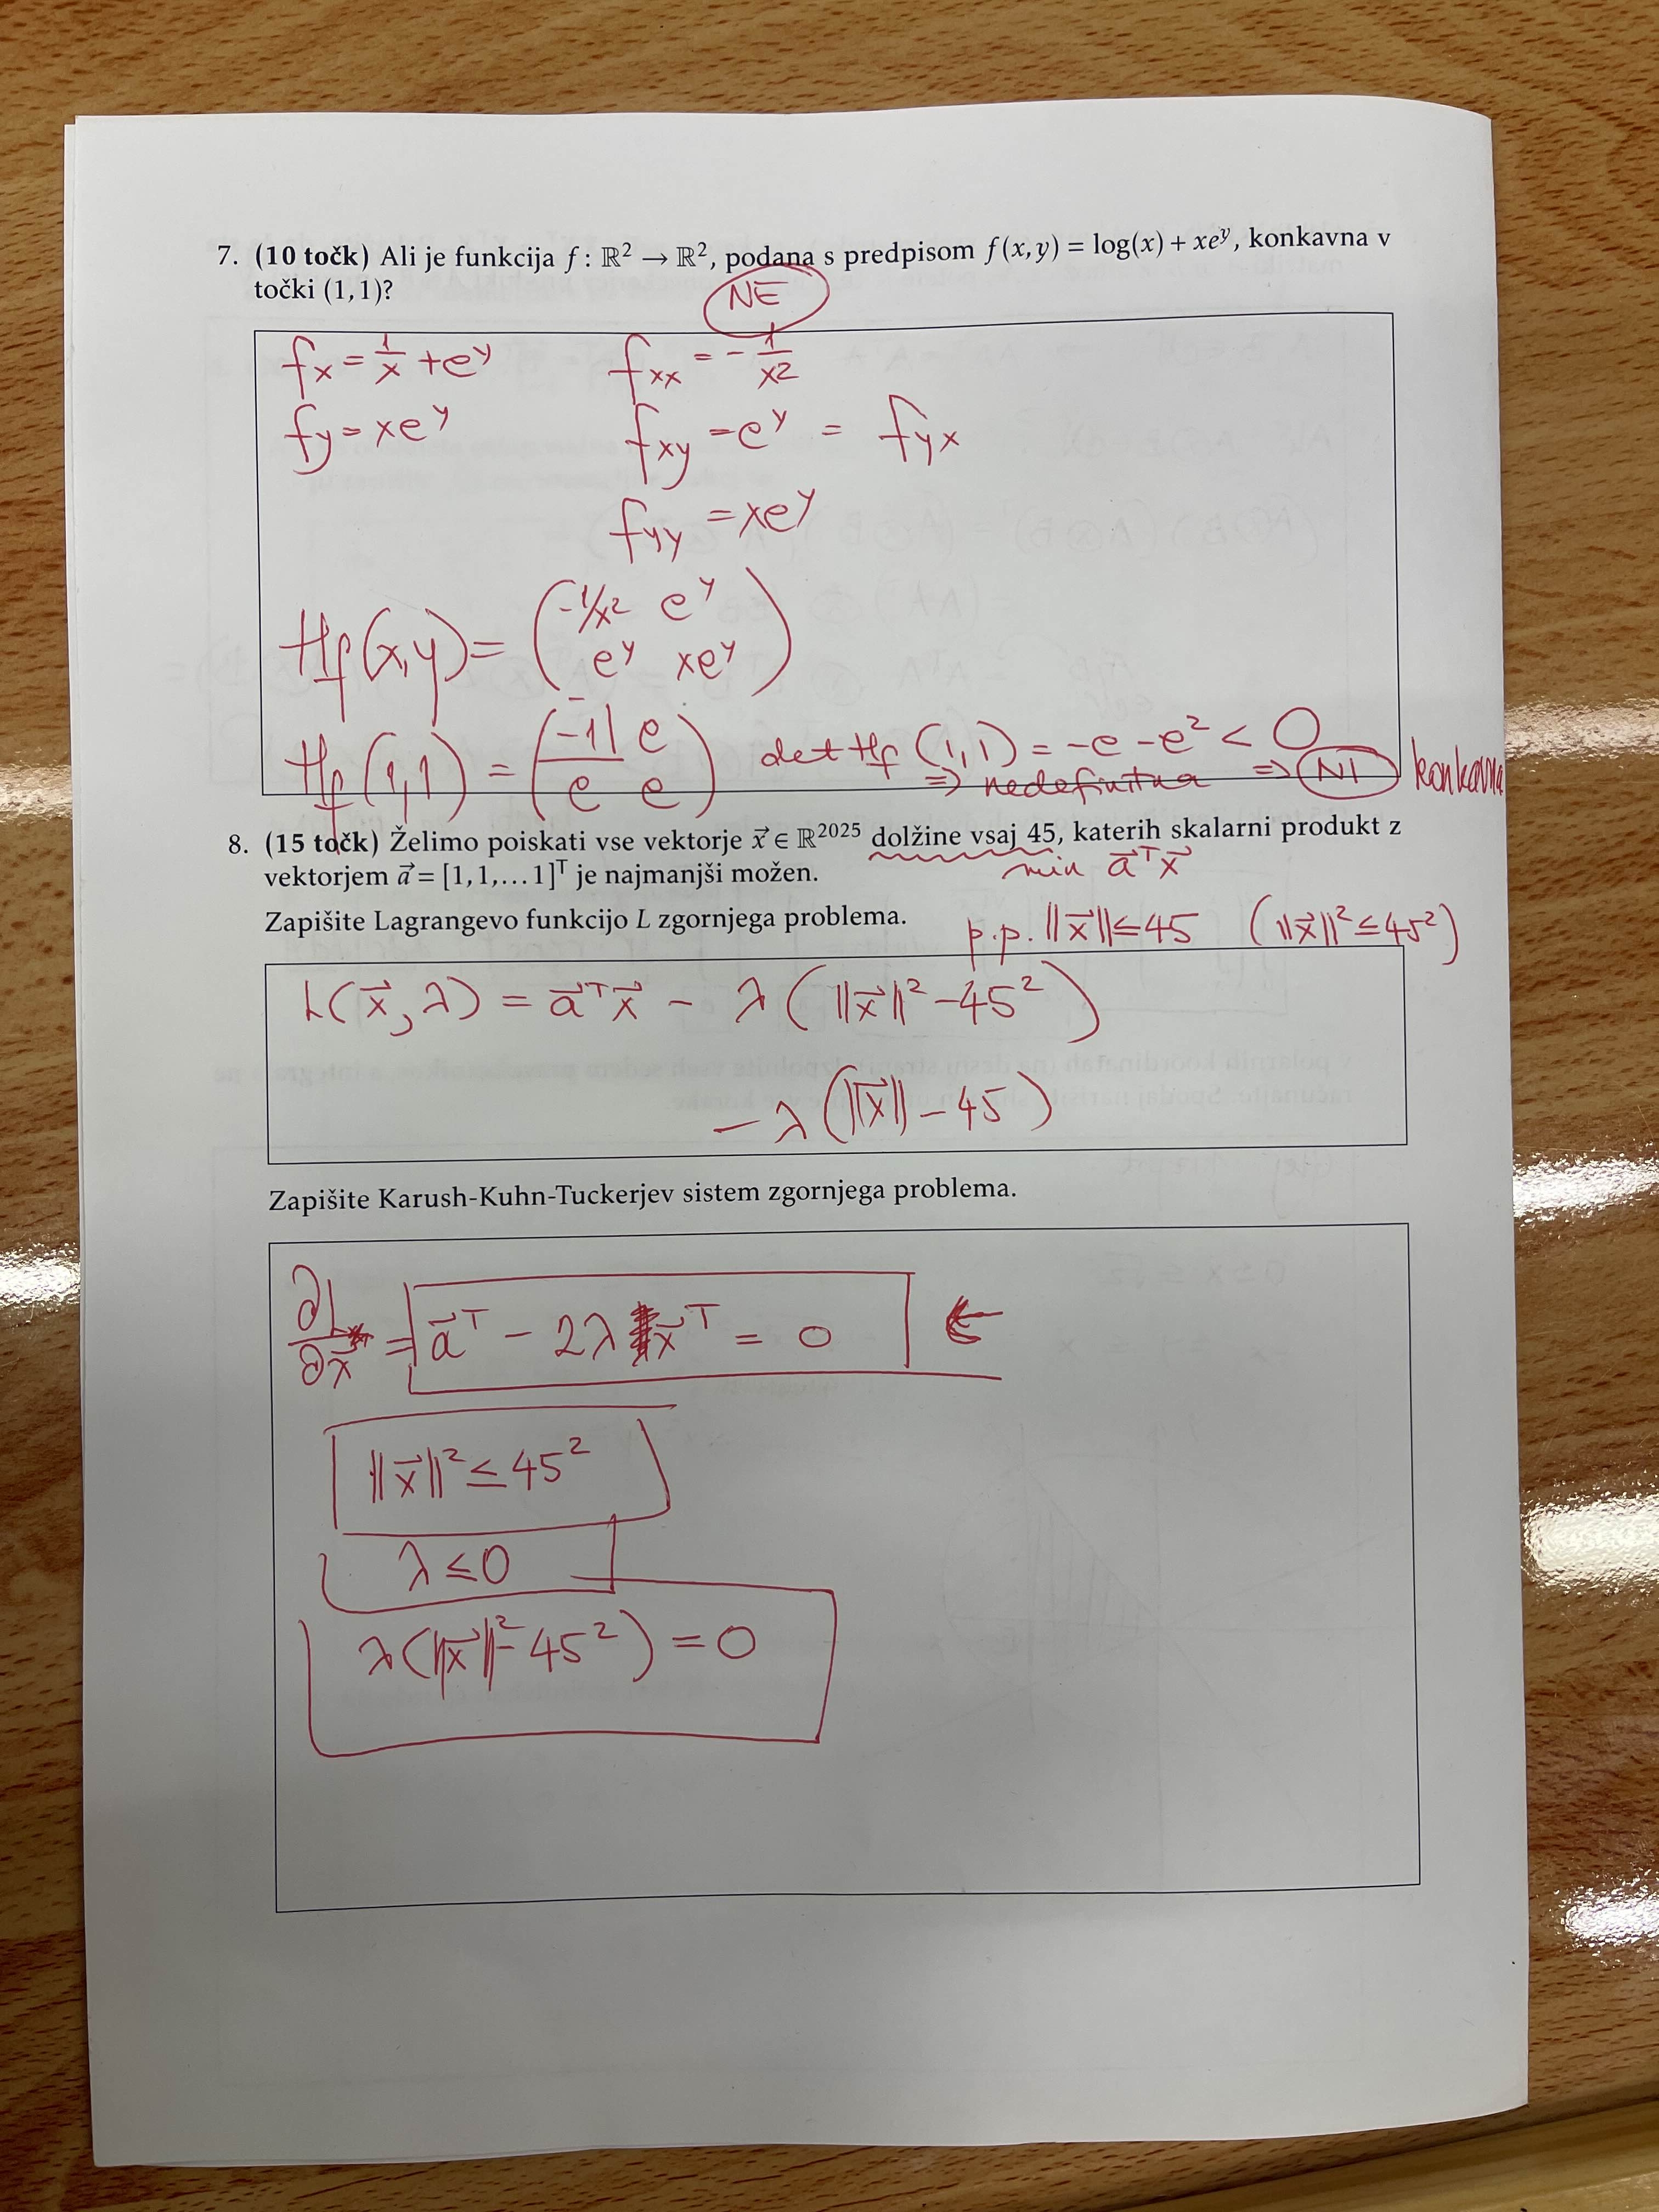 7. (10 točk) Ali je funkcija f : ℝ² → ℝ², podana s predpisom f(x,y) = log(x) + xe^y, konkavna v
točki (1,1)?
NE
f_x = 1/x + e^y    f_xx = - 1/x²
f_y = xe^y    f_xy = e^y = f_yx
f_yy = xe^y
Hf(x,y) = ( -1/x² e^y
e^y xe^y )
Hf(1,1) = ( -1 e
e e ) det Hf(1,1) = -e - e² < 0
⇒ nedefinitna ⇒ NI konkavna
8. (15 točk) Želimo poiskati vse vektorje x⃗ ∈ ℝ²⁰²⁵ dolžine vsaj 45, katerih skalarni produkt z
vektorjem a⃗ = [1,1,…1]ᵀ je najmanjši možen.
min a⃗ᵀx⃗
Zapišite Lagrangevo funkcijo L zgornjega problema.
p.p. ‖x⃗‖ ≤ 45 (‖x⃗‖² ≤ 45²)
L(x⃗, λ) = a⃗ᵀx⃗ - λ(‖x⃗‖² - 45²)
- λ(‖x⃗‖ - 45)
Zapišite Karush-Kuhn-Tuckerjev sistem zgornjega problema.
∂L/∂x⃗ = a⃗ᵀ - 2λx⃗ᵀ = 0 ←
‖x⃗‖² ≤ 45²
λ ≤ 0
λ(‖x⃗‖² - 45²) = 0